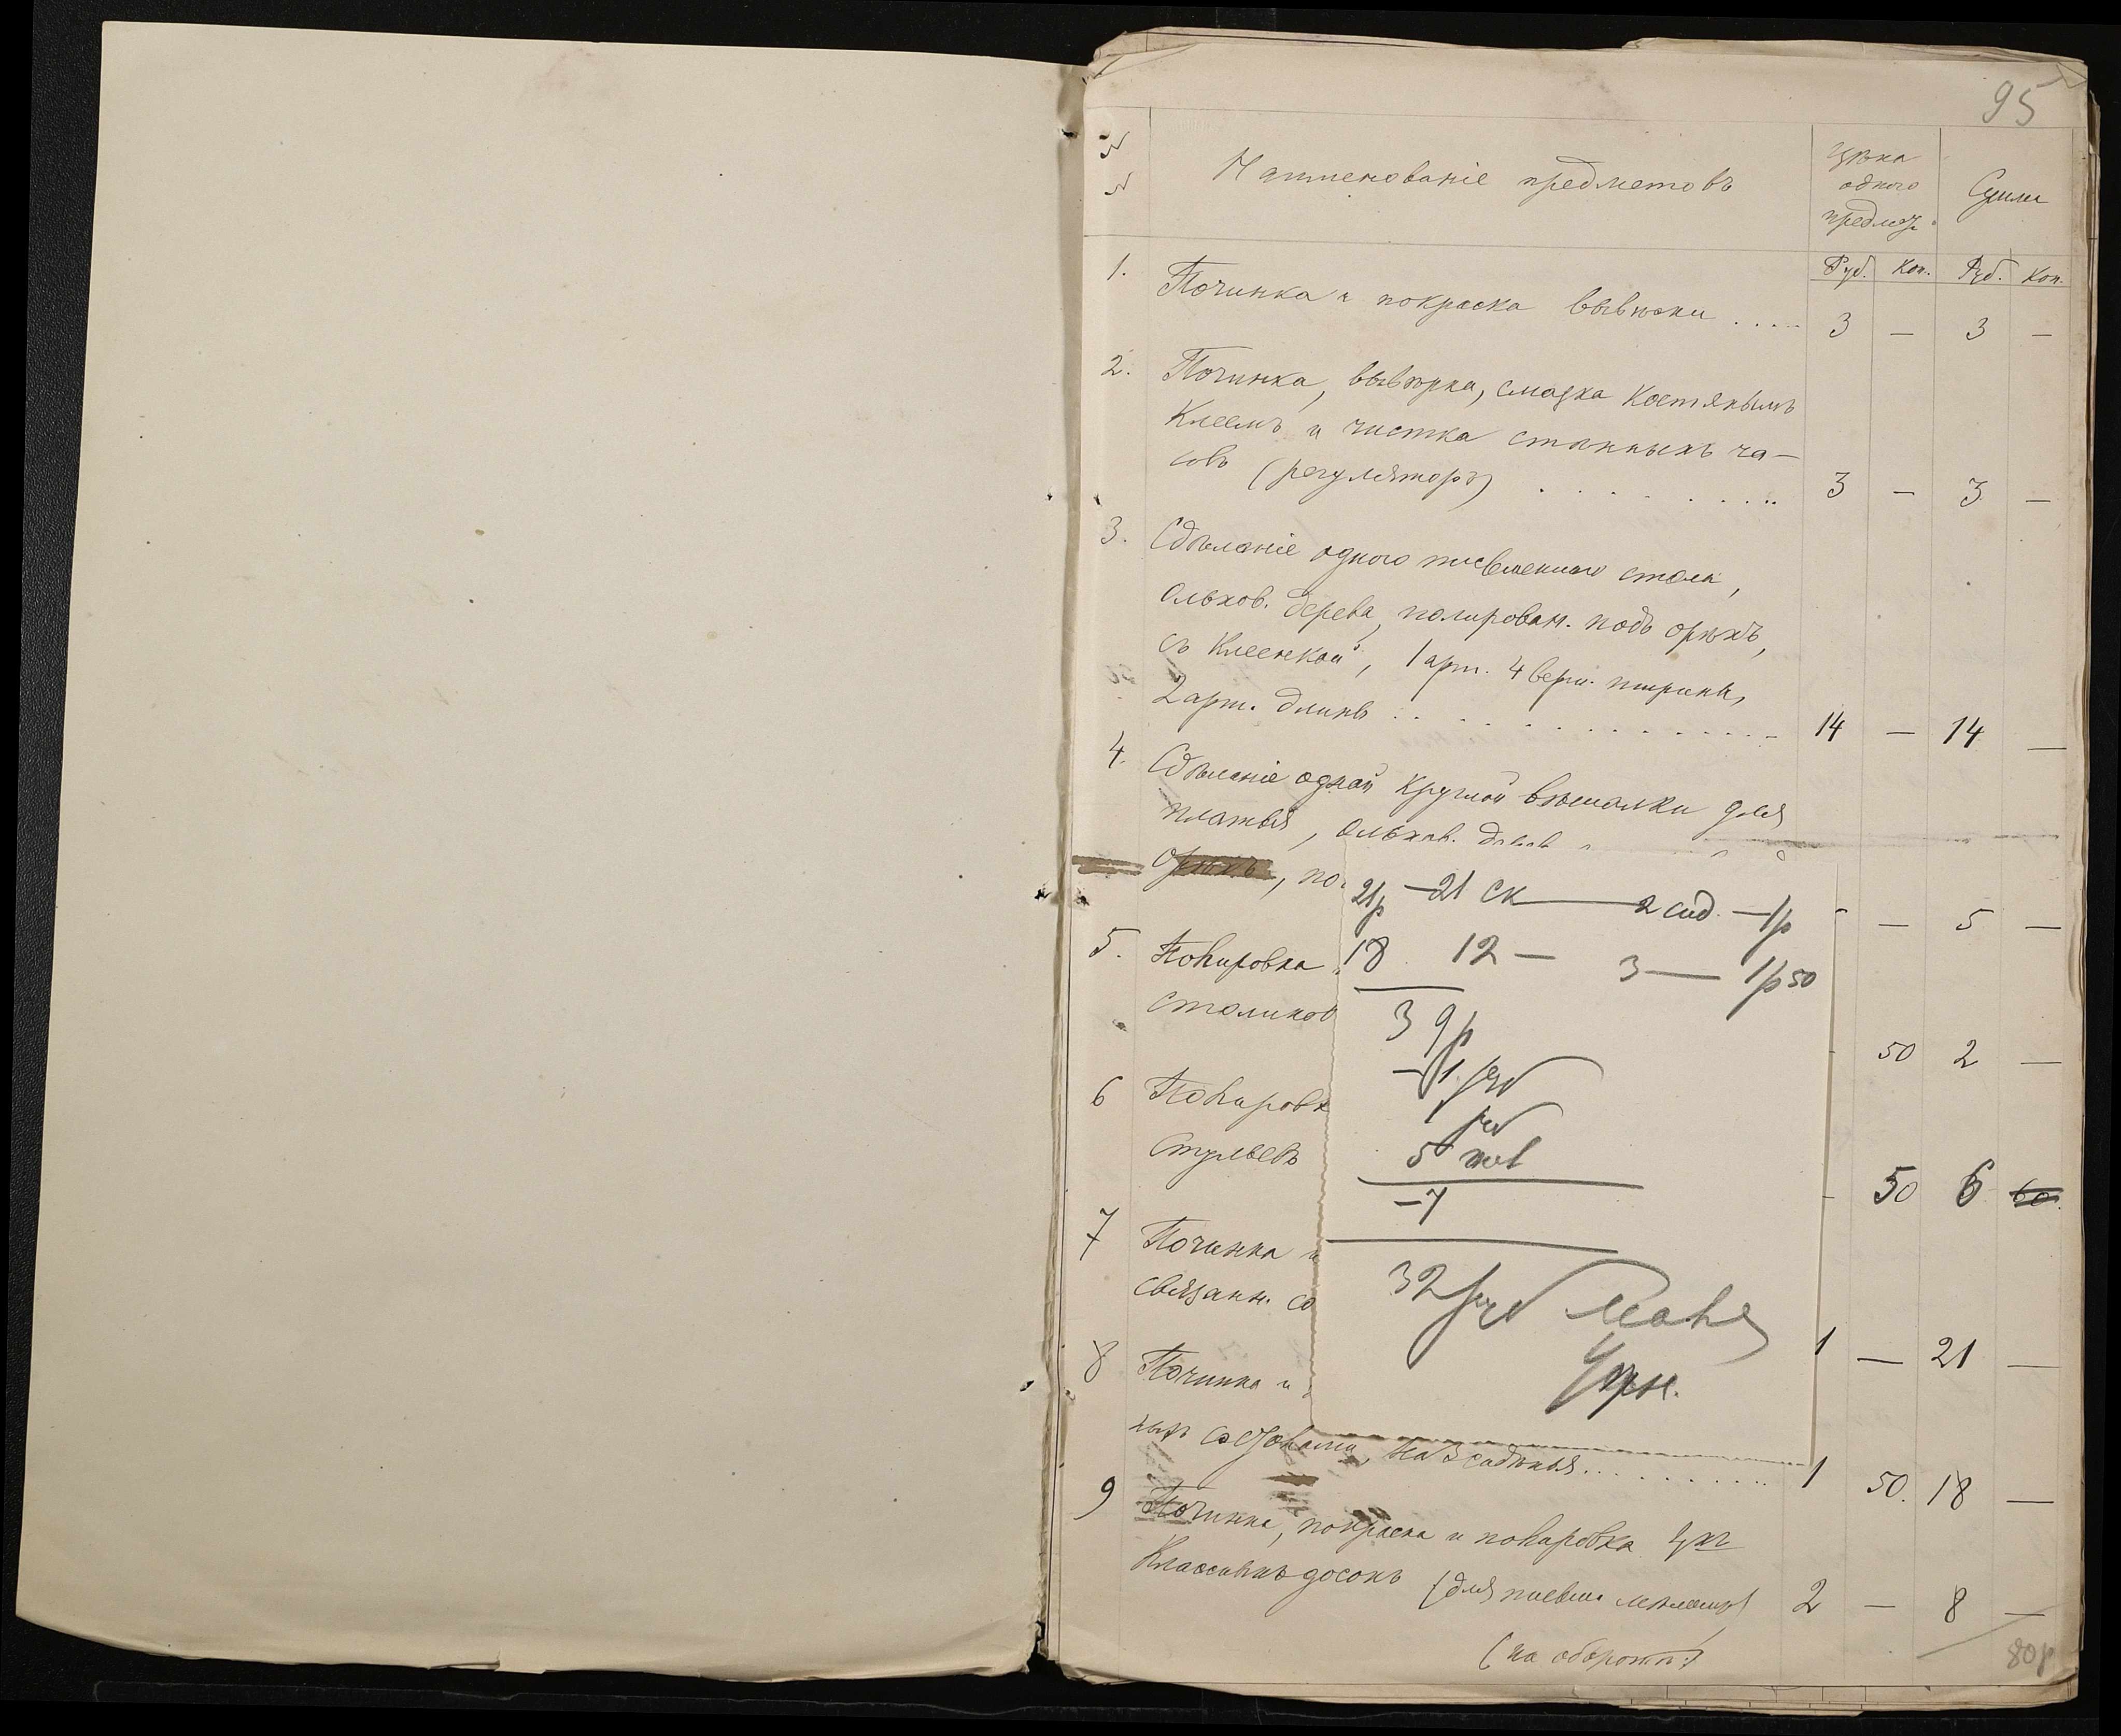 95
№ №
Наименованіе предметовъ
Цѣна одного предмет.
Сумма
Руб. Коп. Руб. Коп.
1. Починка и покраска вывѣски . . . . 3 — 3 —
2. Починка, вывѣрка, смазка костянымъ
клеемъ и чистка стѣнныхъ ча-
совъ (регуляторъ) . . . . . . . . 3 — 3 —
3. Сдѣланіе одного письменнаго стола,
ольхов. дерева, полирован. подъ орѣхъ,
съ клеенкой, 1 арш. 4 верш. ширины,
2 арш. длины . . . . . . . . . . . . 14 — 14 —
4. Сдѣланіе одной круглой вѣшалки для
платья, ольхов.
орѣхъ, по — 5 —
5. Полировка
столиков 50 2 —
6 Полировк
стульевъ 50 6 60
7 Починка и
связанн. со 1 — 21 —
8 Починка и
ныхъ со столами, на 3 сидѣнья . . . . . . . . . 1 50. 18 —
9 Починка, покраска и полировка 4хъ
классныхъ досокъ (для письма мѣломъ) 2 — 8 —
80р
(на оборотѣ)
21р — 21 ск — 2 сид. — 1р
18 12 — 3 — 1р 50
39р
— 1 руб
1 руб
5
— 7
32 руб